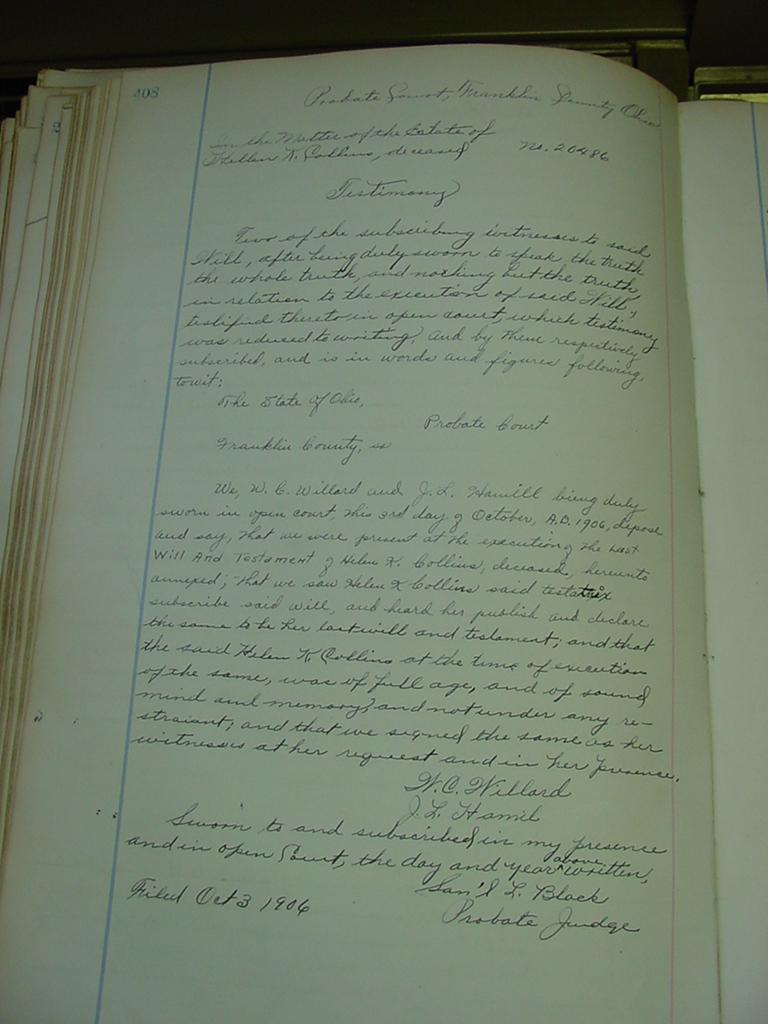 408
Probate Court, Franklin County Ohio
In the Matter of the Estate of
Hellen K. Collins, deceased No. 20486
Testimony
Two of the subscribing witnesses to said
Will, after being duly sworn to speak the truth
the whole truth, and nothing but the truth,
in relation to the execution of said Will,
testified thereto in open court, which testimony
was reduced to writing, and by them respectively
subscribed, and is in words and figures following,
towit:
The State of Ohio,
Probate Court
Franklin County, ss
We, W. C. Willard and J. L. Hamill being duly
sworn in open court, this 3rd day of October, A.D. 1906, depose
and say, that we were present at the execution of the Last
Will And Testament of Helen K. Collins, deceased, hereunto
annexed; that we saw Helen K Collins said testatrix
subscribe said will, and heard her publish and declare
the same to be her last will and testament; and that
the said Helen K. Collins at the time of execution
of the same, was of full age, and of sound
mind and memory, and not under any re-
straiant; and that we signed the same as her
witnesses at her request and in her presence.
W. C. Willard
J. L. Hamil
Sworn to and subscribed in my presence
and in open Court, the day and year above written,
Sam'l L. Black
Filed Oct 3 1906
Probate Judge